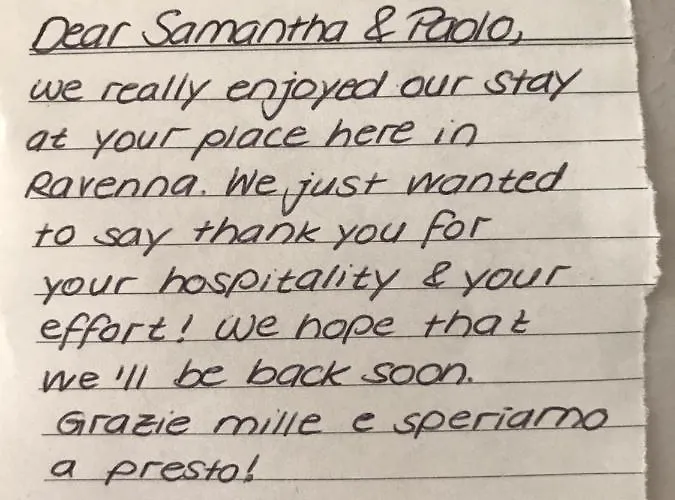 Dear Samantha & Paolo,
we really enjoyed our stay
at your place here in
Ravenna. We just wanted
to say thank you for
your hospitality & your
effort! We hope that
we'll be back soon.
Grazie mille e speriamo
a presto!